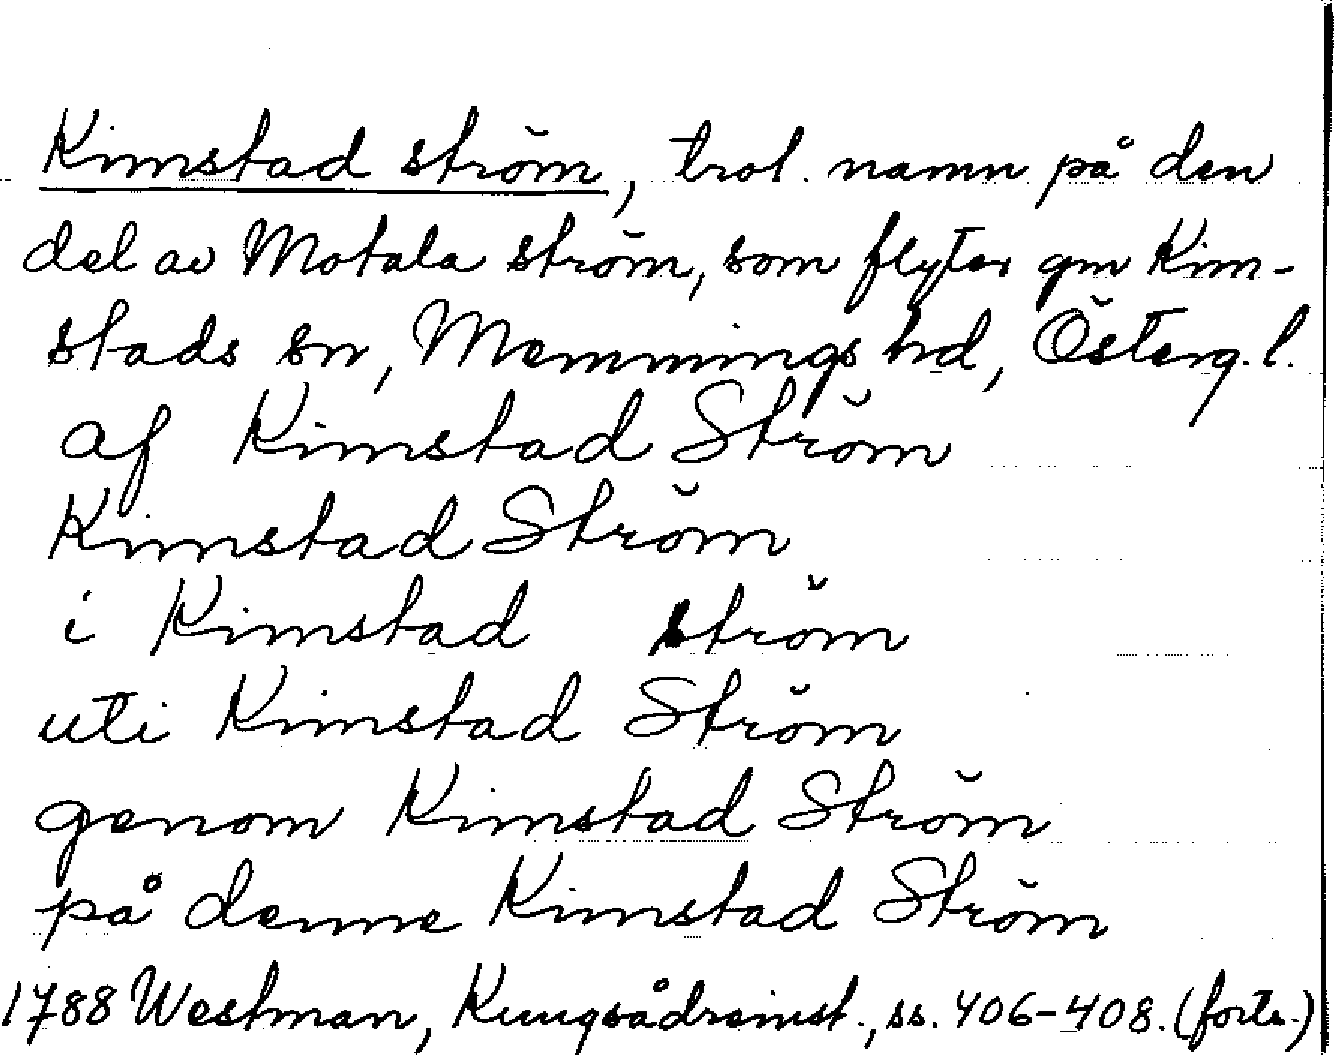 Kimstad ström, trol. namn på den
del av Motala ström, som flyter gm Kim-
stads sn, Memmings hd, Österg. l.
af Kimstad Ström
Kimstad Ström
i Kimstad ström
uti Kimstad Ström
genom Kimstad Ström
på denne Kimstad Ström
1788 Westman, Kungsådreinst., ss. 406-408. (forts.)